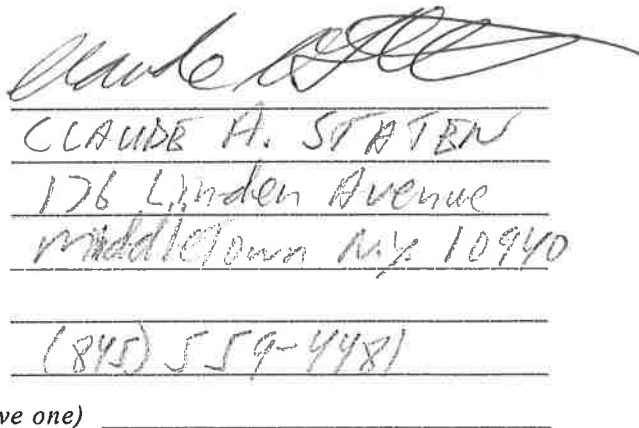 Claude
CLAUDE A. STATEN
176 Linden Avenue
Middletown N.Y. 10940
(845) 559-4481
ve one)